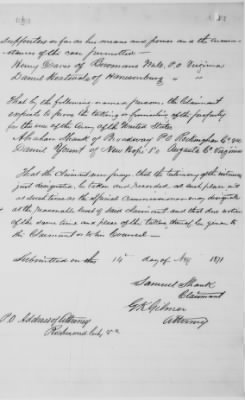 supported as far as his means and power and the circum-
stances of the case permitted—
Henry Davis of Bowmans Mill, P.O Virginia
Daniel of Harrisonburg " "
That by the following named persons, the Claimant
expects to prove the taking or furnishing of the property
for the use of the Army of the United States
Abraham Shank of Broadway P.O Rockingham Co Va
Daniel Yount of New Hope P.O Augusta Co Virginia
That the Claimant now prays that the testimony of the witnesses
just designated, be taken and recorded, at such place and
at such time as the Special Commissioner may designate
at the reasonable cost of said Claimant and that due notice
of the same time and place of the taking thereof be given to
the Claimant or to his Counsel—
Submitted on the 14 day of Nov 1871
Samuel Shank
Claimant
G.K. Gilmer
Attorney
P.O Address of Attorney
Richmond City Va